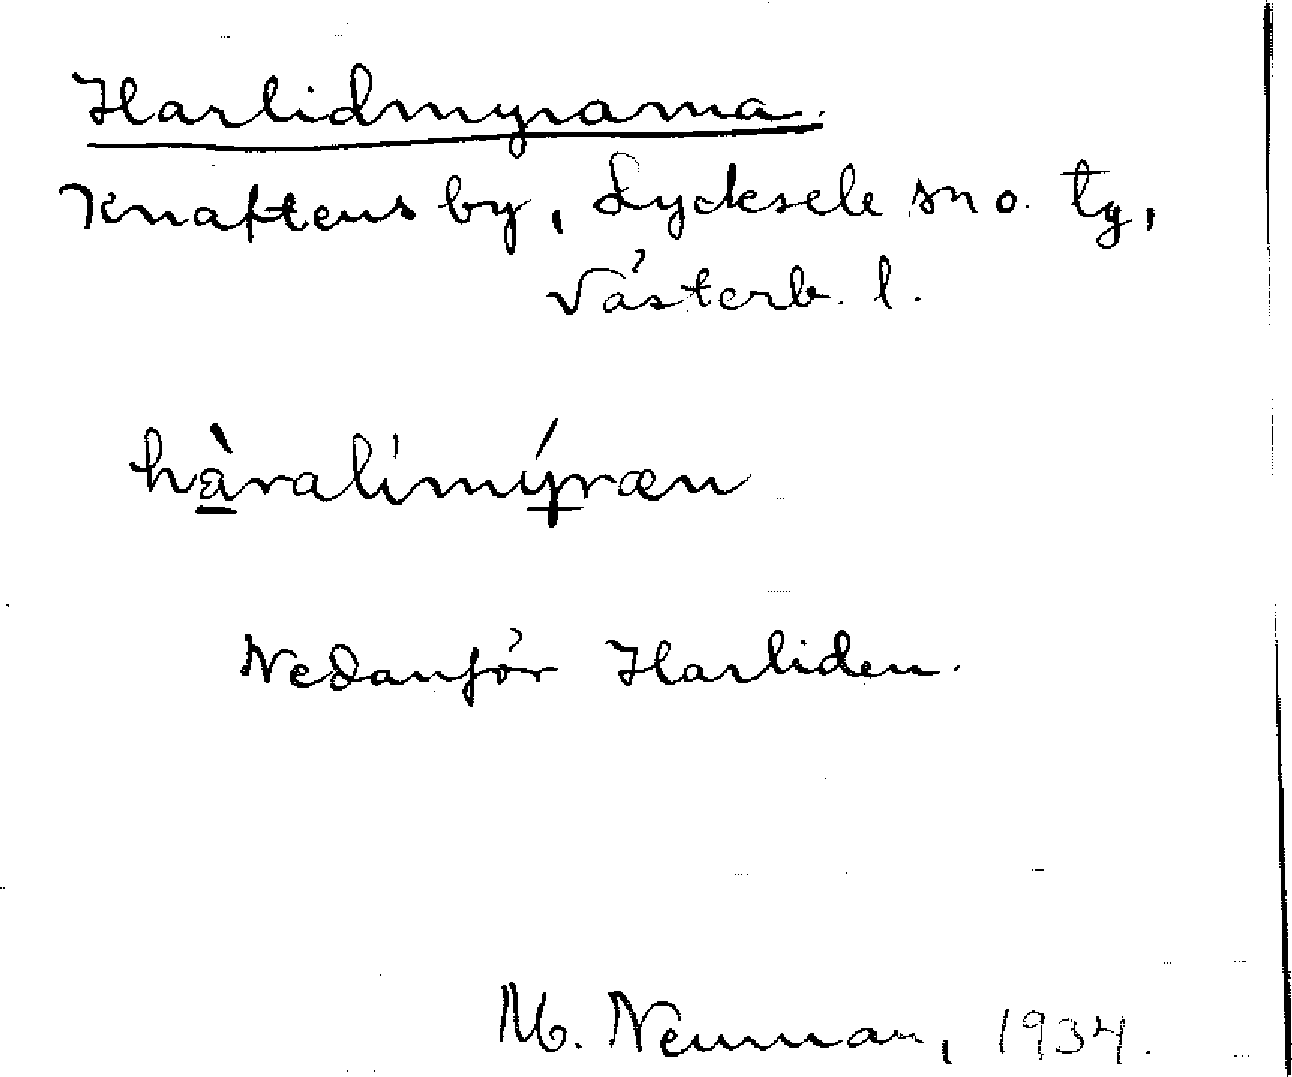 Harlidmyrarna.
Knaftens by, Lycksele sn o. tg,
Västerb. l.
hàralimýræn
Nedanför Harliden.
M. Neuman, 1934.